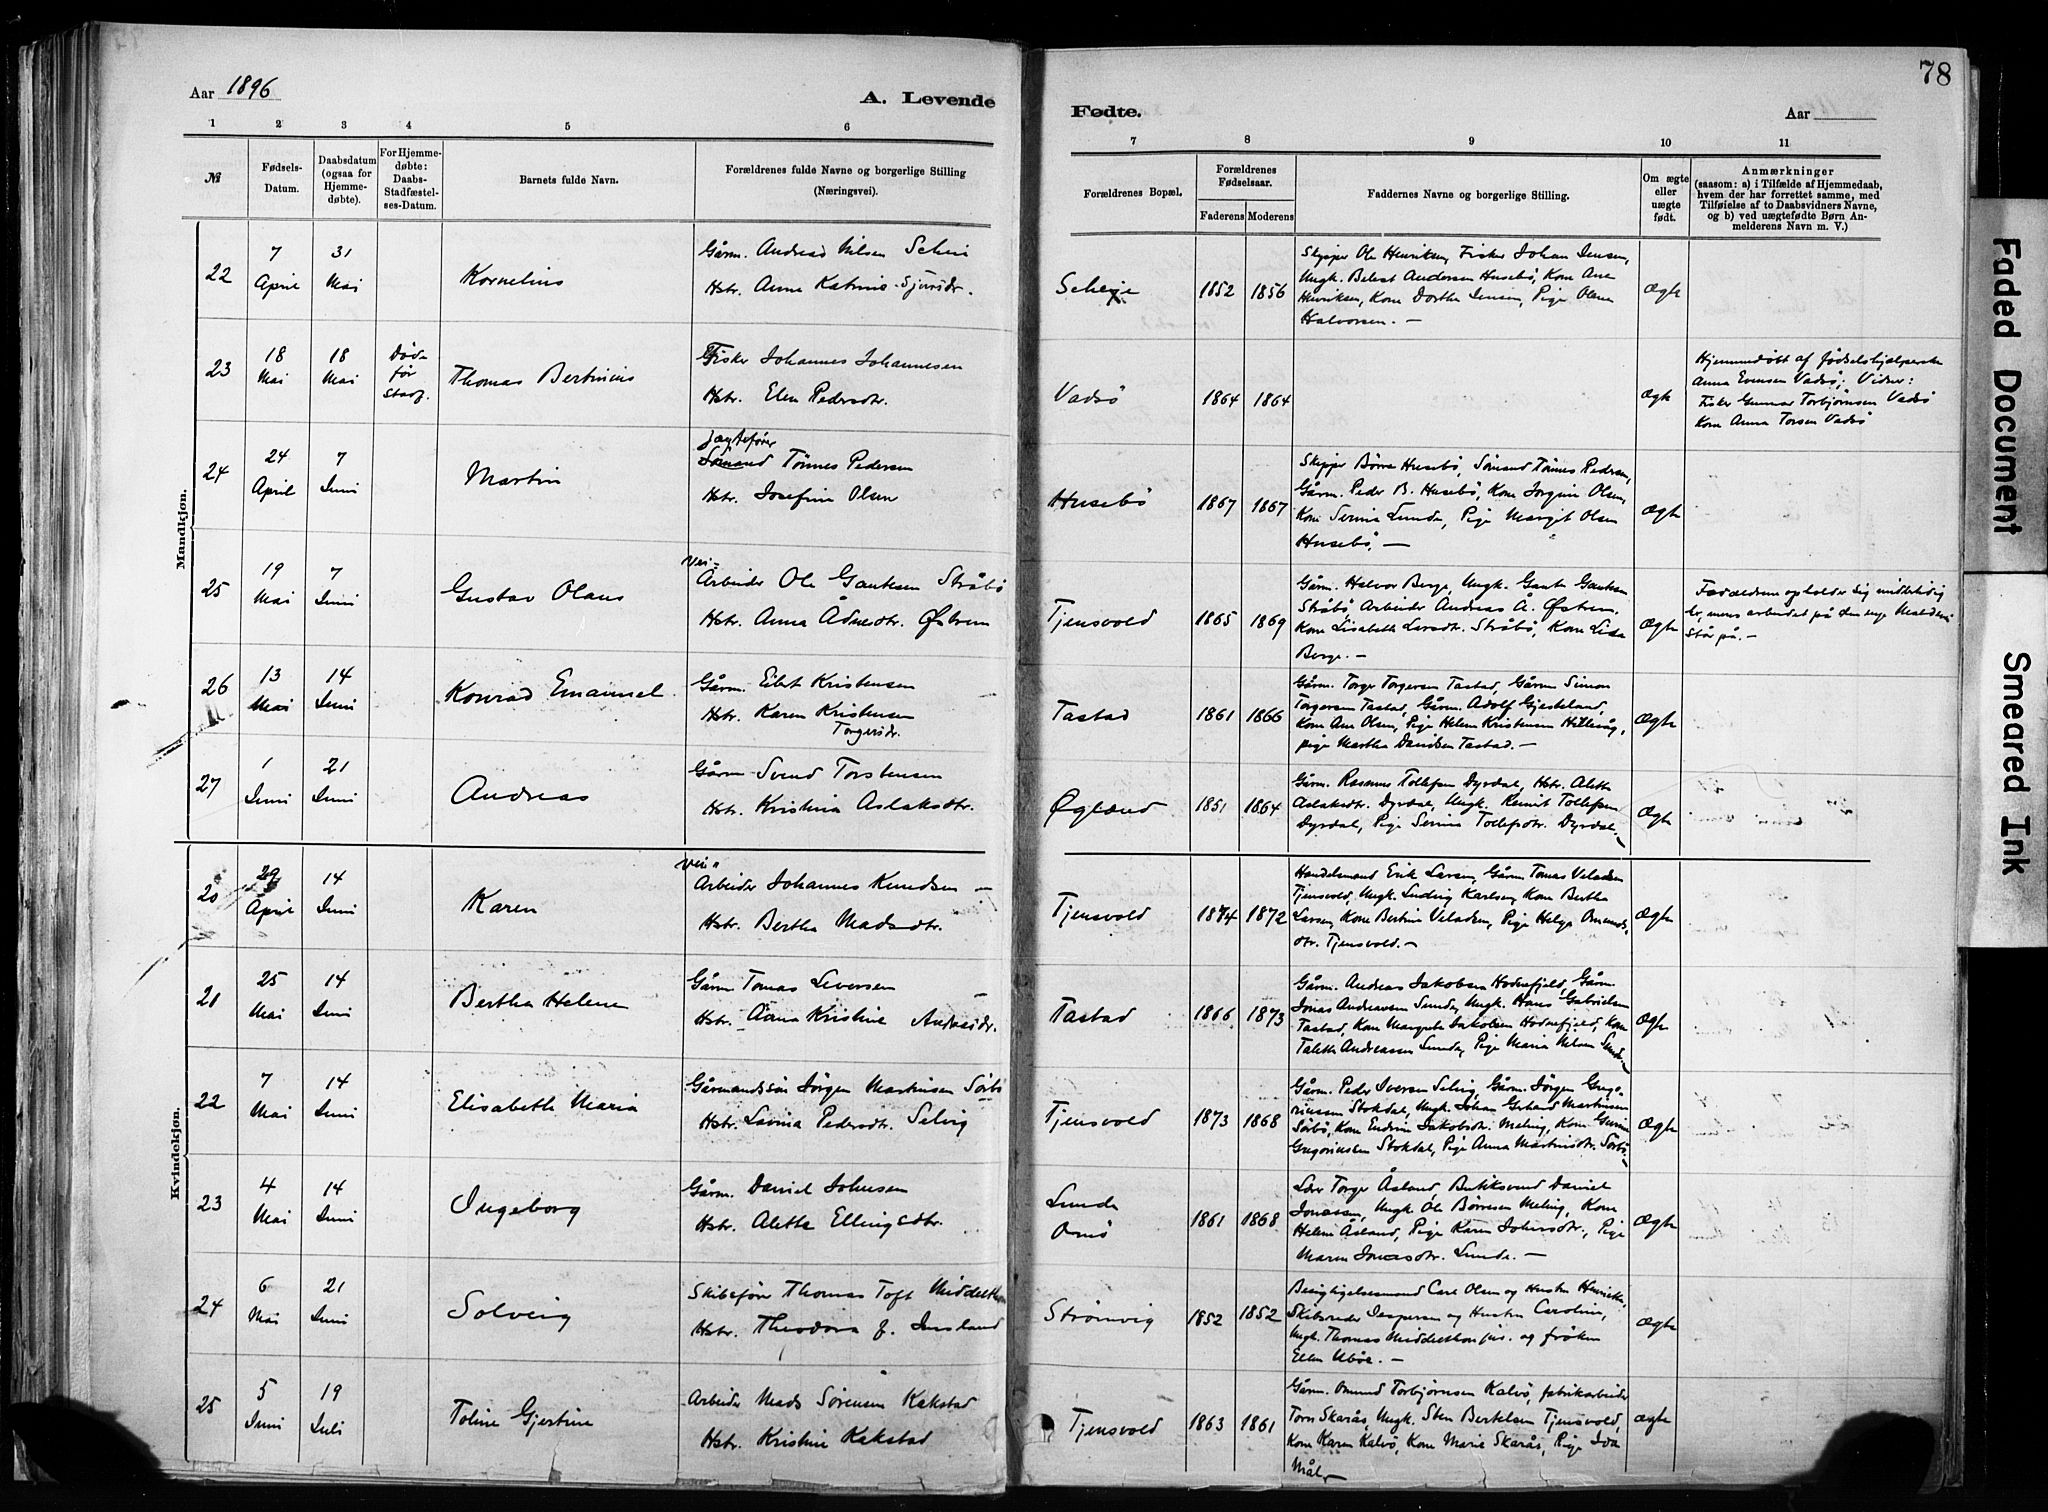 78
Aar 1896
A. Levende
Fødte.
Aar
1 2 3 4 5 6 7 8 9 10 11
№
Fødsels-
Datum.
Daabsdatum
(ogsaa for
Hjemme-
døbte).
For Hjemme-
døbte:
Daabs-
Stadfæstel-
ses-Datum.
Barnets fulde Navn.
Forældrenes fulde Navne og borgerlige Stilling
(Næringsvei).
Forældrenes Bopæl.
Forældrenes
Fødselsaar.
Faderens Moderens
Faddernes Navne og borgerlige Stilling.
Om ægte
eller
uægte
født.
Anmærkninger
(saasom: a) i Tilfælde af Hjemmedaab,
hvem der har forrettet samme, med
Tilføielse af to Daabsvidners Navne,
og b) ved uægtefødte Børn An-
melderens Navn m. V.)
Mandkjøn.
22
7
April
31
Mai
Kornelius
Gårm. Andreas Nilsen
Hstr. Anna Katrine Sjursdr.
1852 1856
Skipper Ole Henriksen, Fisker Johan Jensen,
Ungk. Andersen Husebö, Kone Ane
Henriksen, Kone Dorthe Jensen, Pige Olene
Halvorsen. —
Ægte
23
18
Mai
18
Mai
Døde
før
Stadf.
Thomas Bertinius
Fisker Johannes Johannesen
Hstr. Elen Pedersdtr.
Vadsö
1864 1864
Ægte
Hjemmedöbt af födselshjælperske
Anna Evensen Vadsö; Vidner:
Fisker Gunnar Torbjörnsen Vadsö
Kone Anna Torsen Vadsö
24
24
April
7
Juni
Martin
Jagtefører
Sömand Tönnes Pedersen
Hstr. Josefine Olsen
Husebö
1867 1867
Skipper Börre Husebö, Sömand Tönnes Pedersen,
Gårm. Peder B. Husebö, Kone Jörgine Olsen,
Kone Serina Lunde, Pige Margit Olsen
Husebö. —
Ægte
25
19
Mai
7
Juni
Gustav Olaus
Vei-
Arbeider Ole Gautesen Stråbö
Hstr. Anna Ådnesdtr. Østrem
Tjensvold
1865 1869
Gårm. Halvor Berge, Ungk. Gaute Gautesen
Stråbö, Arbeider Andreas Å. Østrem,
Kone Lisabeth Larsdtr. Stråbö, Kone Lisa
Berge. —
Ægte
Forældrene opholder sig midlertidig
her, mens arbeidet på den nye
står på. —
26
13
Mai
14
Juni
Konrad Emanuel.
Gårm. Eilert Kristensen
Hstr. Karen Kristensen
Torgersdr.
Tastad
1861 1866
Gårm. Torger Torgersen Tastad, Gårm. Simon
Torgersen Tastad, Gårm. Adolf Gjesteland,
Kone Ane Olsen, Pige Helene Kristensen Hillevåg,
pige Martha Danielsen Tastad. —
Ægte
27
1
Juni
21
Juni
Andreas
Gårm Svend Torstensen
Hstr. Kristina Aslaksdtr.
Øgland
1851 1864
Gårm. Rasmus Tollefsen Dyrdal, Hstr. Alette
Aslaksdtr. Dyrdal, Ungk. Tollefsen
Dyrdal, Pige Serine Tollefsdtr. Dyrdal. —
Ægte
Kvindekjøn.
20
29
April
14
Juni
Karen
Vei-
Arbeider Johannes Knudsen —
Hstr. Bertha Madsdtr.
Tjensvold
1874 1872
Handelsmand Erik Larsen, Gårm Tomas Veladsen
Tjensvold, Ungk. Ludvig Karlsen, Kone Bertha
Larsen, Kone Bertine Veladsen, Pige Helga Omunds-
dtr. Tjensvold. —
Ægte
21
25
Mai
14
Juni
Bertha Helene
Gårm Tomas Siversen —
Hstr. Anna Kristine Andreasdr.
Tastad
1866 1873
Gårm. Andreas Jakobsen Hodnefjeld, Gårm
Jonas Andreassen Sunde, Ungk. Hans Gabrielsen
Tastad, Kone Margrete Jakobsen Hodnefjeld, Kone
Talette Andreassen Sunde, Pige Maria Nilsen Sunde
Ægte
22
7
Mai
14
Juni
Elisabeth Maria
Gårmandssön Jörgen Martinsen Sörbö
Hstr. Lavina Pedersdtr. Selvig
Tjensvold
1873 1868
Gårm. Peder Iversen Selvig, Gårm. Jörgen Grego-
riussen Stokdal, Ungk. Johan Gerhard Martinsen
Sörbö, Kone Endrine Jakobsdtr. Meling, Kone Gurine
Gregoriussen Stokdal, Pige Anna Martinsdtr. Sörbö.
Ægte
23
4
Mai
14
Juni
Ingeborg
Gårm. Daniel Johnsen
Hstr. Alette Ellingsdtr.
Lunde
Omö
1861 1868
Lær Torger Åsland, Butiksvend Daniel
Jonassen, Ungk Ole Börresen Meling, Kone
Helene Åsland, Pige Karen Johnsdtr., Pige
Maren Jonasdtr. Lunde. —
Ægte
24
6
Mai
21
Juni
Solveig
Skibsför Thomas Toft Middelthon
Hstr. Theodora f. Jersland
Strömvig
1852 1852
Besigtigelsesmand Carl Olsen og Hustru Henrikke,
Skibsreder Jespersen og Hustru Caroline,
Ungk. Thomas Middelthon jun. og fröken
Ellen Uböe. —
Ægte
25
5
Juni
19
Juli
Toline Gjertine
Arbeider Mads Sörensen Kakstad
Hstr. Kristine Kakstad
Tjensvold
1863 1861
Gårm. Omund Torbjörnsen Kalvö, fabrikarbeider
Torn Skarås, Ungk. Sten Bertelsen Tjensvold,
Kone Karen Kalvö, Kone Marie Skarås, Pige Ida
Mål. —
Ægte
Faded Document
Smeared Ink